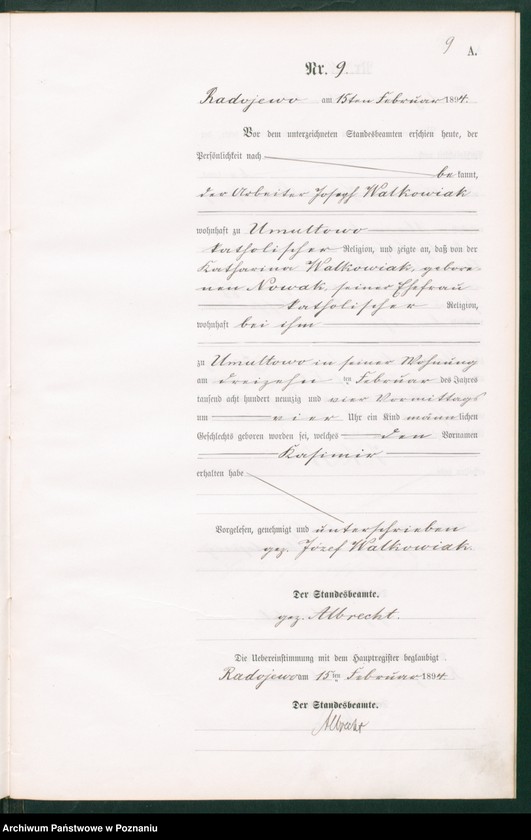 9
A.
Nr. 9.
Radojewo am 15ten Februar 1894.
Vor dem unterzeichneten Standesbeamten erschien heute, der
Persönlichkeit nach
bekannt,
der Arbeiter Joseph Walkowiak
wohnhaft zu Umultowo
katholischer Religion, und zeigte an, daß von der
Katharina Walkowiak, gebore-
nen Nowak, seiner Ehefrau
katholischer Religion,
wohnhaft bei ihm
zu Umultowo in seiner Wohnung
am dreizehn ten Februar des Jahres
tausend acht hundert neunzig und vier Vormittags
um vier Uhr ein Kind männlichen
Geschlechts geboren worden sei, welches den Vornamen
Kasimir
erhalten habe
Vorgelesen, genehmigt und unterschrieben
gez. Józef Walkowiak.
Der Standesbeamte.
gez. Albrecht.
Die Uebereinstimmung mit dem Hauptregister beglaubigt
Radojewo am 15ten Februar 1894
Der Standesbeamte.
Albrecht
Archiwum Państwowe w Poznaniu